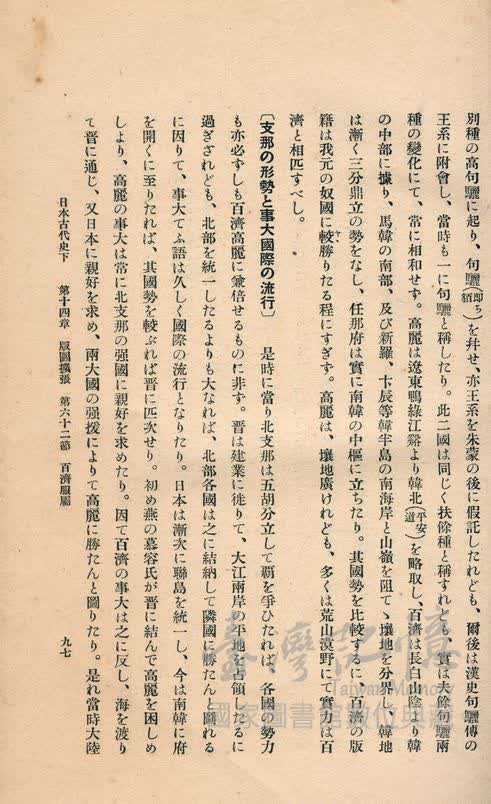 別種の高句驪に起り、句驪(即ち貊)を幷せ、亦王系を朱蒙の後に假託したれども、爾後は漢史句驪傳の
王系に附會し、當時も一に句驪と稱したり。此二國は同じく扶餘種と稱すれども、實は夫餘句驪兩
種の變化にて、常に相和せず。高麗は遼東鴨綠江谿より韓北(平安道)を略取し、百濟は長白山陰より韓
の中部に據り、馬韓の南部、及び新羅、卞辰等韓半島の南海岸と山嶺を阻てゝ壤地を分界し、韓地
は漸く三分鼎立の勢をなし、任那府は實に南韓の中樞に立ちたり。其國勢を比較するに、百濟の版
籍は我元の奴國に較勝りたる程にすぎず。高麗は、壤地廣けれども、多くは荒山漠野にて實力は百
濟と相匹すべし。
〔支那の形勢と事大國際の流行〕 是時に當り北支那は五胡分立して覇を爭ひたれば、各國の勢力
も亦必ずしも百濟高麗に兼倍せるものに非ず。晋は建業に徙りて、大江兩岸の平地を占領したるに
過ぎざれども、北部を統一したるよりも大なれば、北部各國は之に結納して隣國に勝たんと圖れる
に因りて、事大てふ語は久しく國際の流行となりたり。日本は漸次に聯島を統一し、今は南韓に府
を開くに至りたれば、其國勢を較ぶれば晋に匹次せり。初め燕の慕容氏が晋に結んで高麗を困しめ
しより、高麗の事大は常に北支那の强國に親好を求めたり。因て百濟の事大は之に反し、海を渡り
て晋に通じ、又日本に親好を求め、兩大國の强援によりて高麗に勝たんと圖りたり。是れ當時大陸
日本古代史下 第十四章 版圖擴張 第六十二節 百濟服屬 九七
臺灣記憶
Taiwan Memory
國家圖書館數位典藏